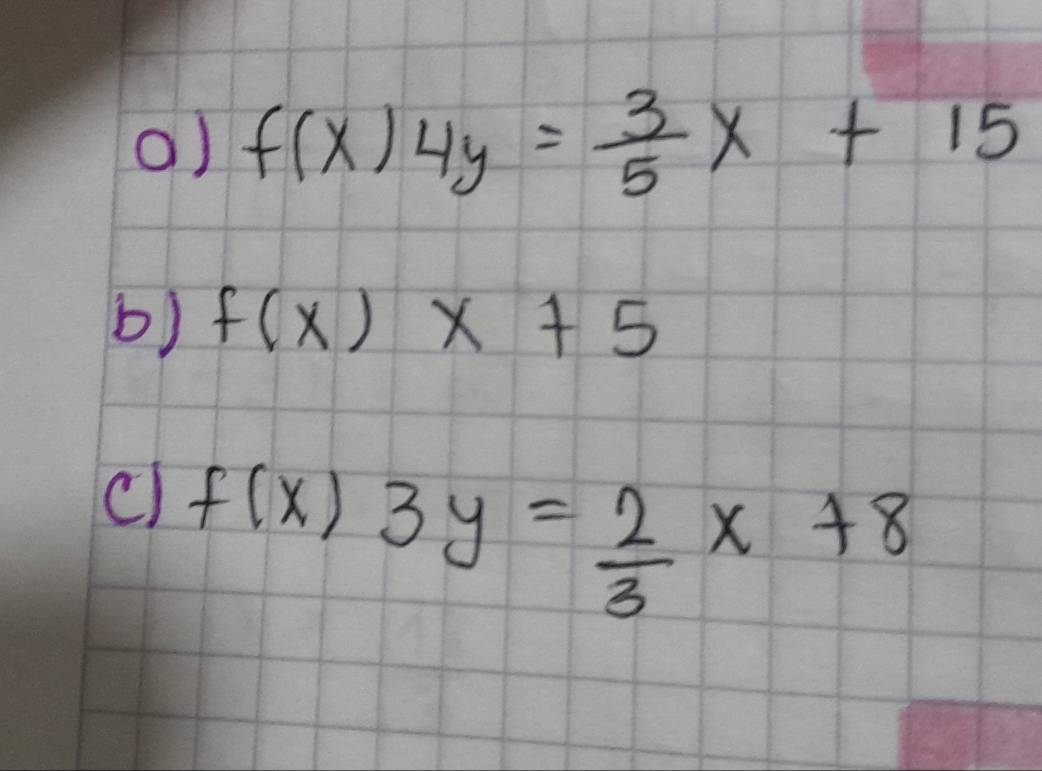 a) f(x) 4y = 3/5 x + 15
b) f(x) x + 5
c) f(x) 3y = 2/3 x + 8